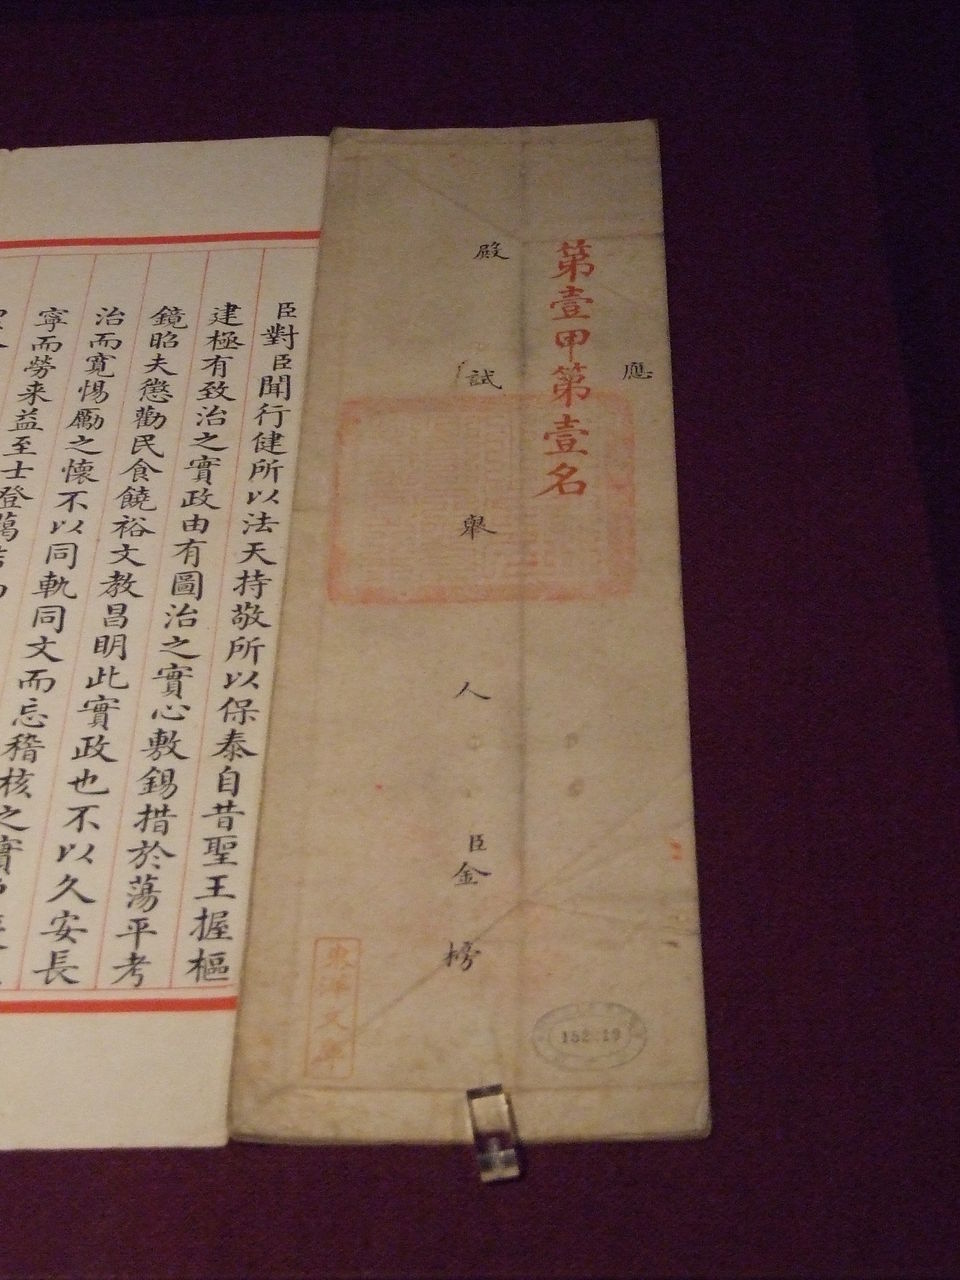 應
第壹甲第壹名
殿試舉人臣金榜
東洋文庫
臣對臣聞行健所以法天持敬所以保泰自昔聖王握樞
建極有致治之實政由有圖治之實心敷錫措於蕩平考
鏡昭夫懲勸民食饒裕文教昌明此實政也不以久安長
治而寛惕勵之懷不以同軌同文而忘稽核之實
寧而勞来益至士登萬